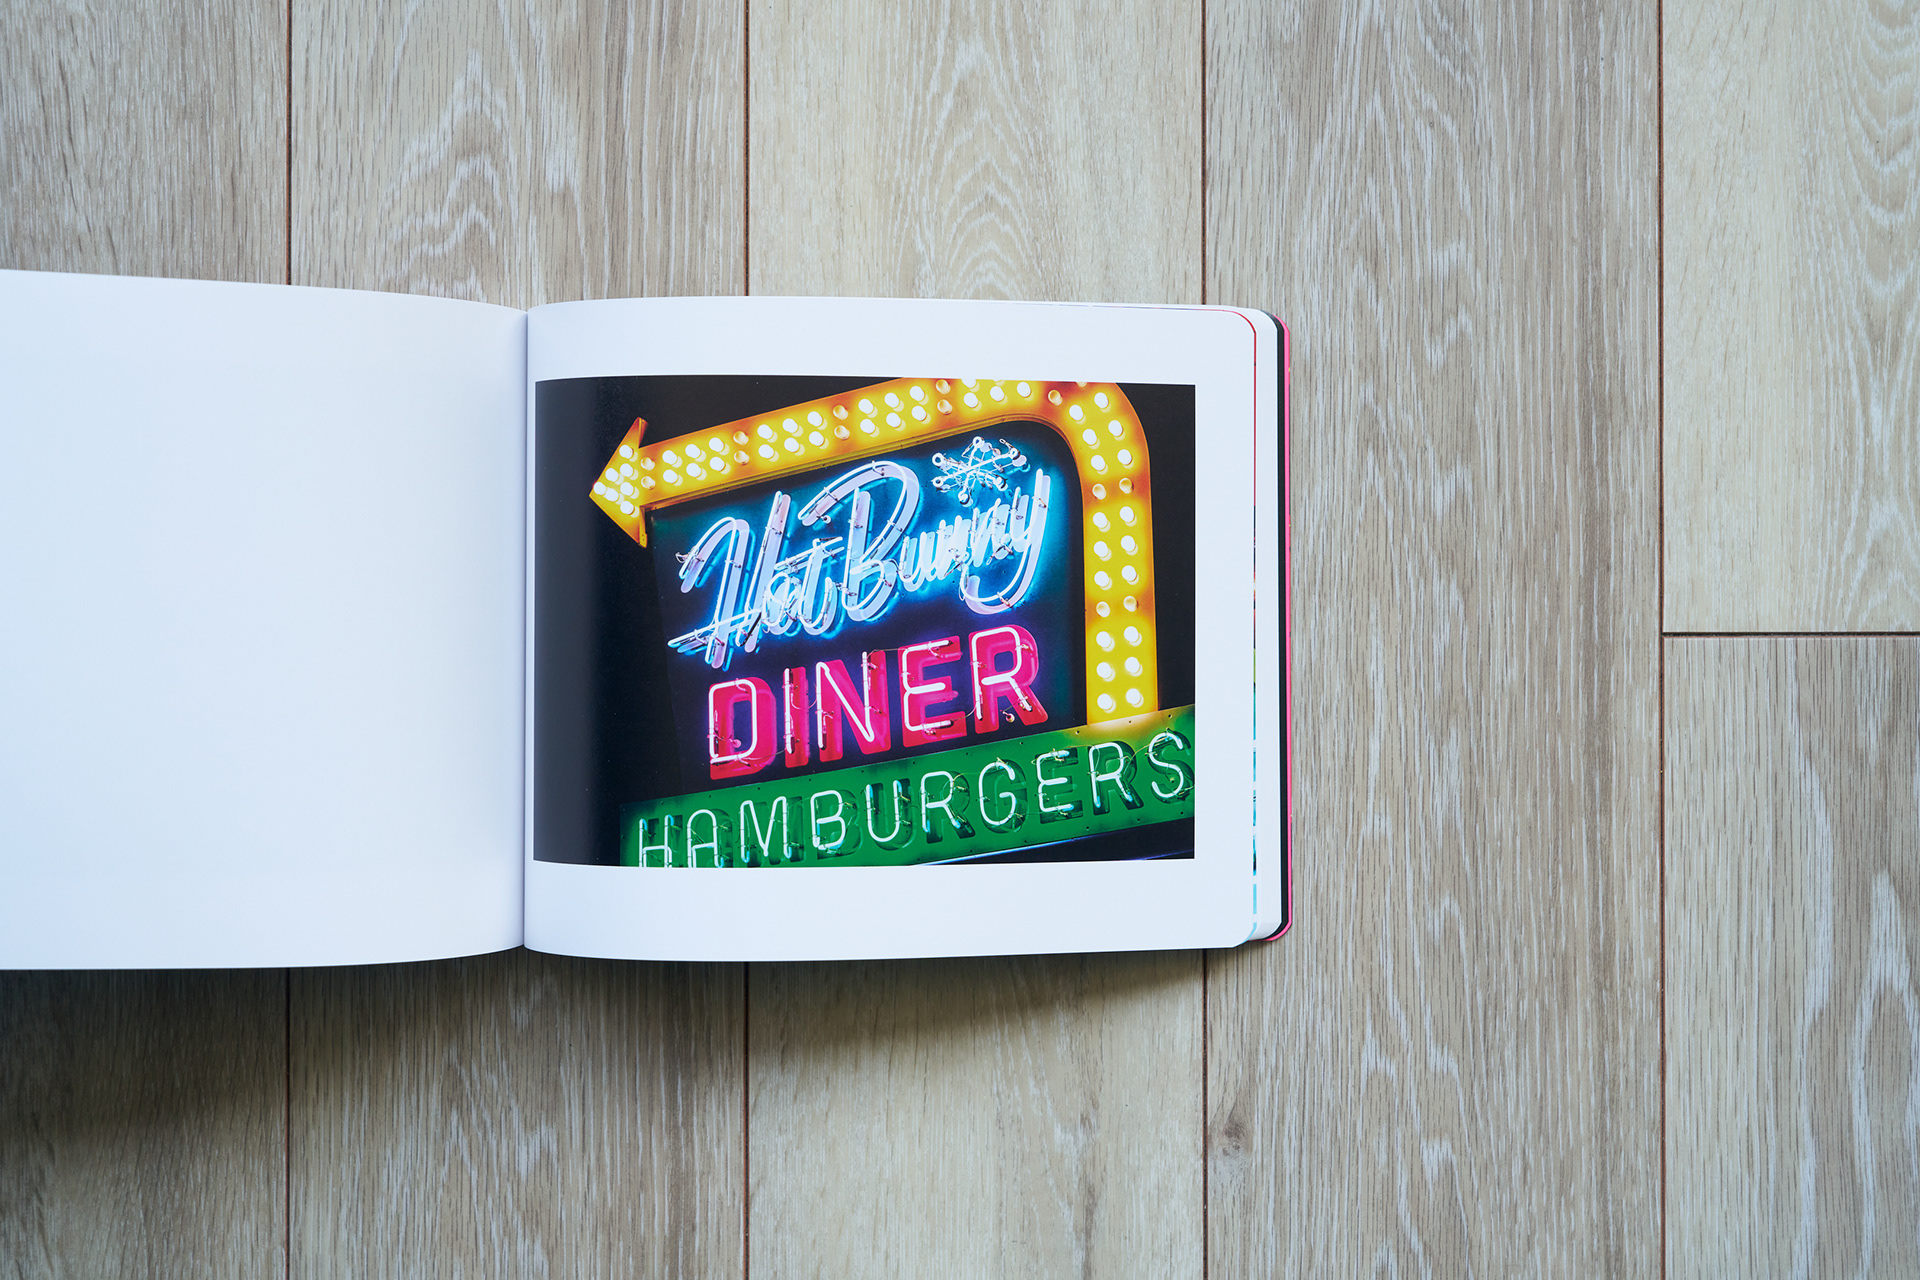 Hot Bunny
DINER
HAMBURGERS